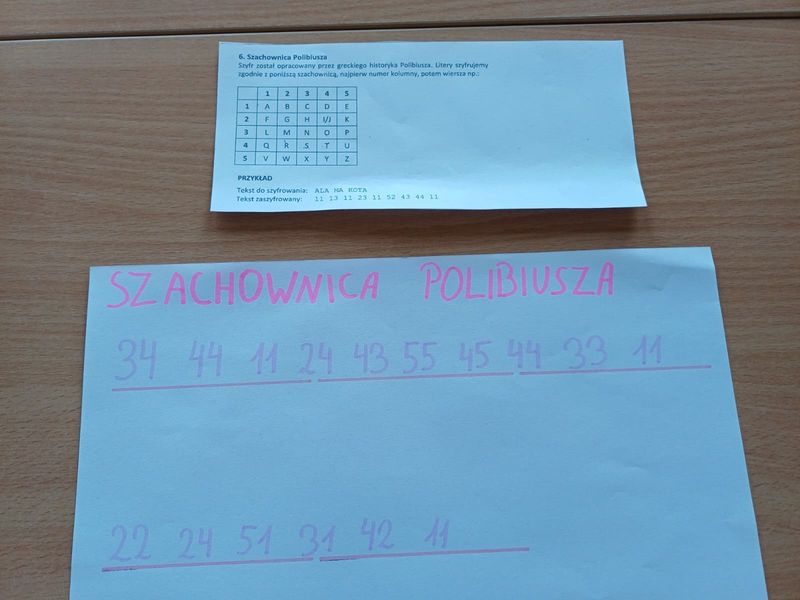 6. Szachownica Polibiusza
Szyfr został opracowany przez greckiego historyka Polibiusza. Litery szyfrujemy
zgodnie z poniższą szachownicą, najpierw numer kolumny, potem wiersza np.:
1 2 3 4 5
1 A B C D E
2 F G H I/J K
3 L M N O P
4 Q R S T U
5 V W X Y Z
PRZYKŁAD
Tekst do szyfrowania: ALA MA KOTA
Tekst zaszyfrowany: 11 13 11 23 11 52 43 44 11
SZACHOWNICA POLIBIUSZA
34 44 11 24 43 55 45 44 33 11
22 24 51 31 42 11